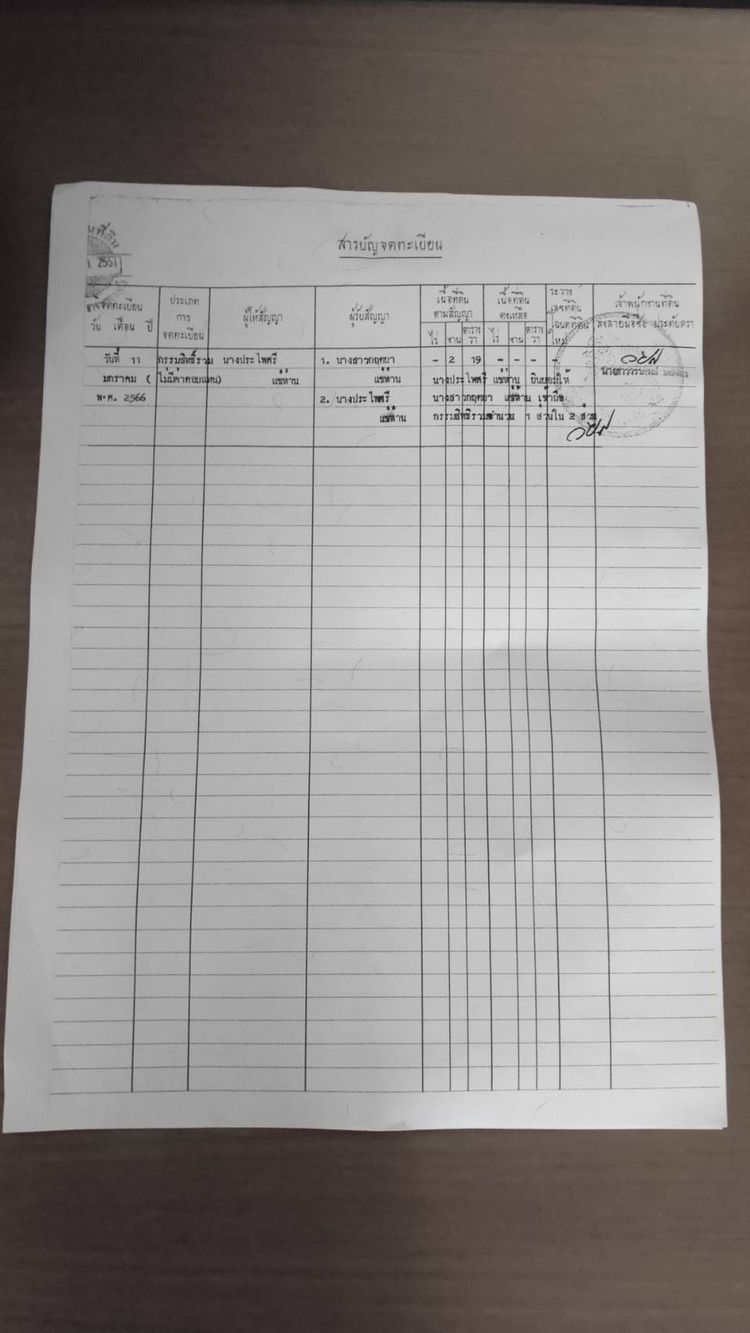 สารบัญจดทะเบียน
จดทะเบียน
วัน เดือน ปี
ประเภท
การ
จดทะเบียน
ผู้ให้สัญญา
ผู้รับสัญญา
เนื้อที่ดิน
ตามสัญญา
ไร่ งาน ตาราง
วา
เนื้อที่ดิน
คงเหลือ
ไร่ งาน ตาราง
วา
ระวาง
เลขที่ดิน
โฉนดที่ดิน
ใหม่
เจ้าพนักงานที่ดิน
ลงลายมือชื่อ ประทับตรา
วันที่ 11 กรรมสิทธิ์รวม นางประไพศรี 1. นางสาวกฤตยา - 2 19 - - - -
มกราคม (ไม่มีค่าตอบแทน) แซ่ห่าน แซ่ห่าน นางประไพศรี แซ่ห่าน ยินยอมให้
พ.ศ. 2566 2. นางประไพศรี นางสาวกฤตยา แซ่ห่าน เข้าถือ
แซ่ห่าน กรรมสิทธิ์รวมจำนวน 1 ส่วนใน 2 ส่วน